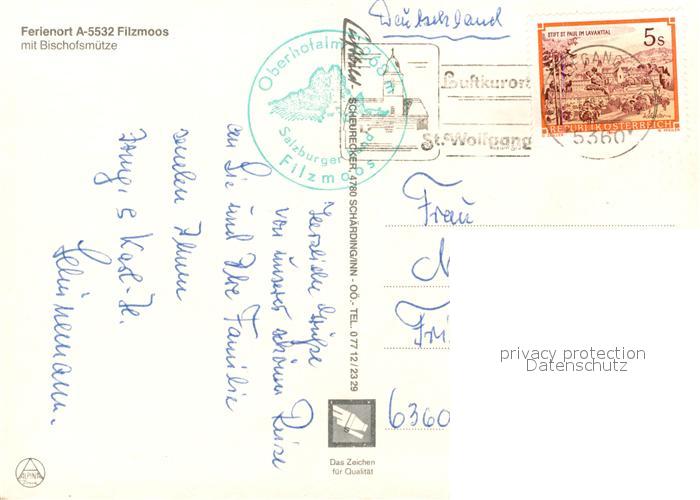 Ferienort A-5532 Filzmoos
mit Bischofsmütze
Deutschland
Oberhofalm 1268 m
Salzburger
Filzmoos
Luftkurort
St. Wolfgang
5360
STIFT ST. PAUL IM LAVANTTAL
5s
REPUBLIK ÖSTERREICH
SCHEURECKER, 4780 SCHÄRDING/INN - OÖ.- TEL. 0 77 12 / 23 29
Herzliche Grüße
von unserer schönen Reise
an Sie und Ihre Familie
senden Ihnen
Karl-H.
Frau
N
Fri
6360
privacy protection
Datenschutz
Das Zeichen
für Qualität
ALPINA